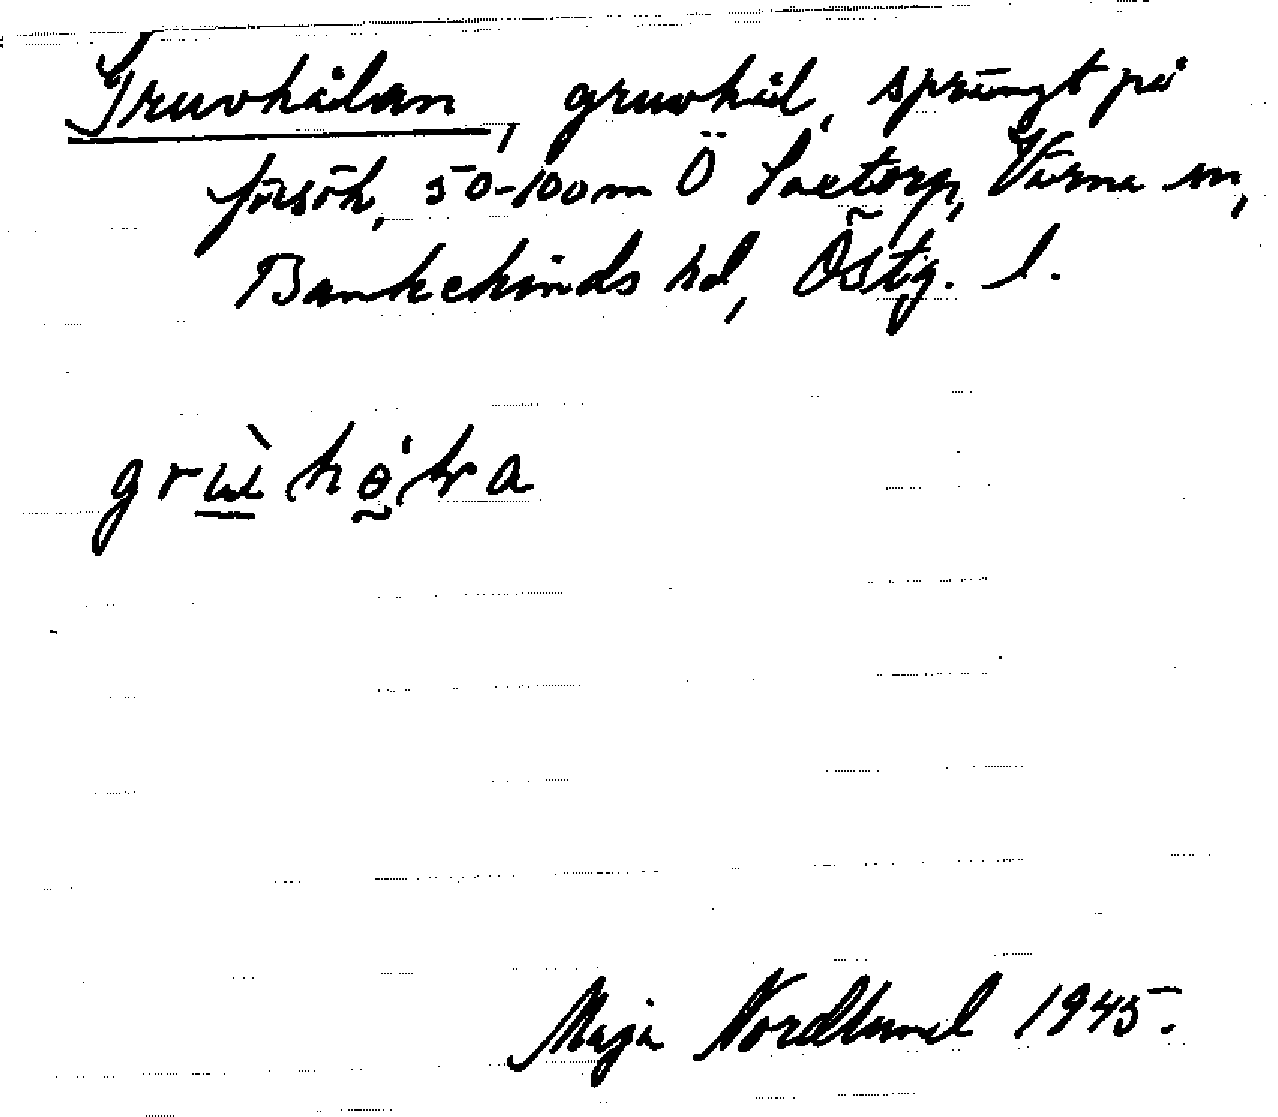 Gruvhålan, gruvhål, sprängt på
försök, 50-100 m Ö Saetorp, Värna sn,
Bankekinds hd, Östg. l.
Maja Nordlund 1945.